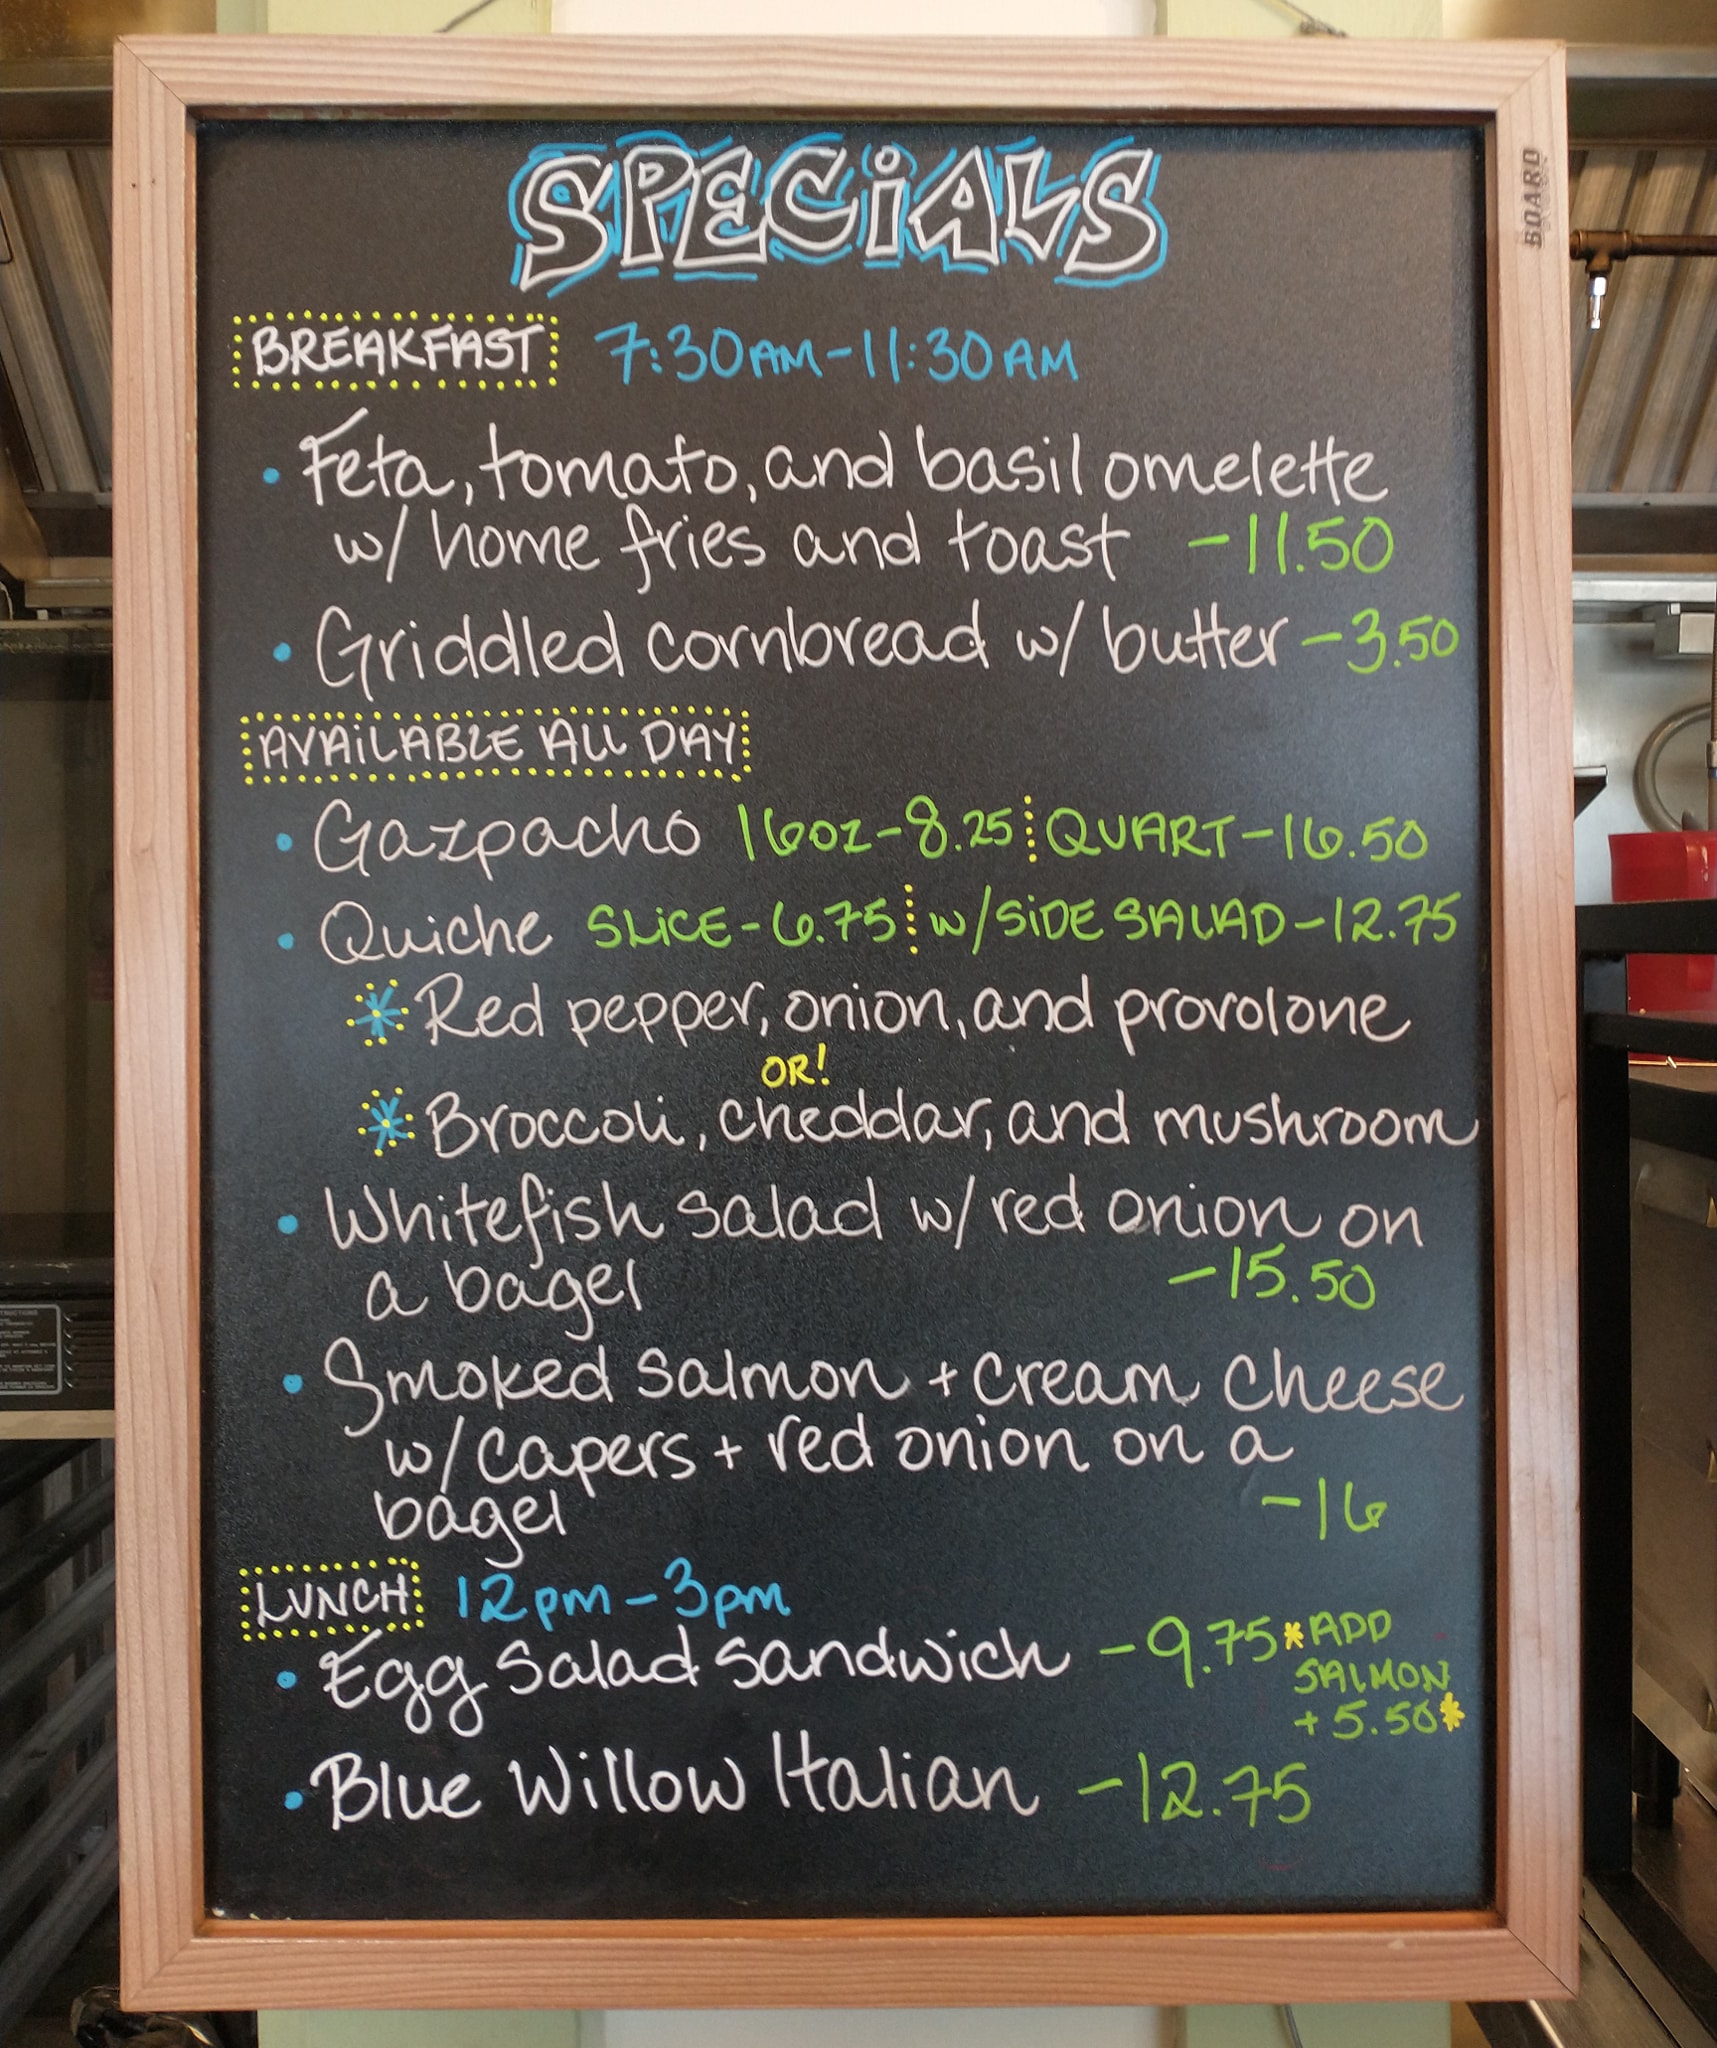 SPECiALS
BREAKFAST 7:30AM-11:30AM
• Feta, tomato, and basil omelette
w/ home fries and toast -11.50
• Griddled cornbread w/ butter -3.50
AVAiLABLE ALL DAY
• Gazpacho 16oz-8.25 QUART-16.50
• Quiche SLiCE-6.75 w/SiDE SALAD-12.75
* Red pepper, onion, and provolone
OR!
* Broccoli, cheddar, and mushroom
• Whitefish salad w/ red onion on
a bagel -15.50
• Smoked salmon + cream cheese
w/ capers + red onion on a
bagel -16
LUNCH 12pm-3pm
• Egg salad sandwich -9.75 *ADD
SALMON
+5.50*
• Blue Willow Italian -12.75
BOARD